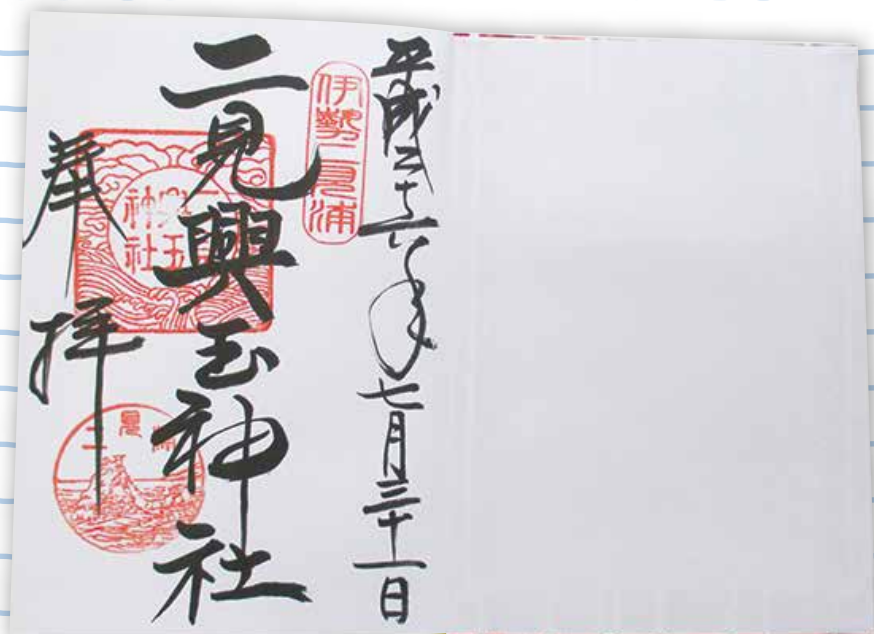 平成二十六年七月三十一日
伊勢二見浦
二見興玉神社
奉拝
興玉
神社
二見浦